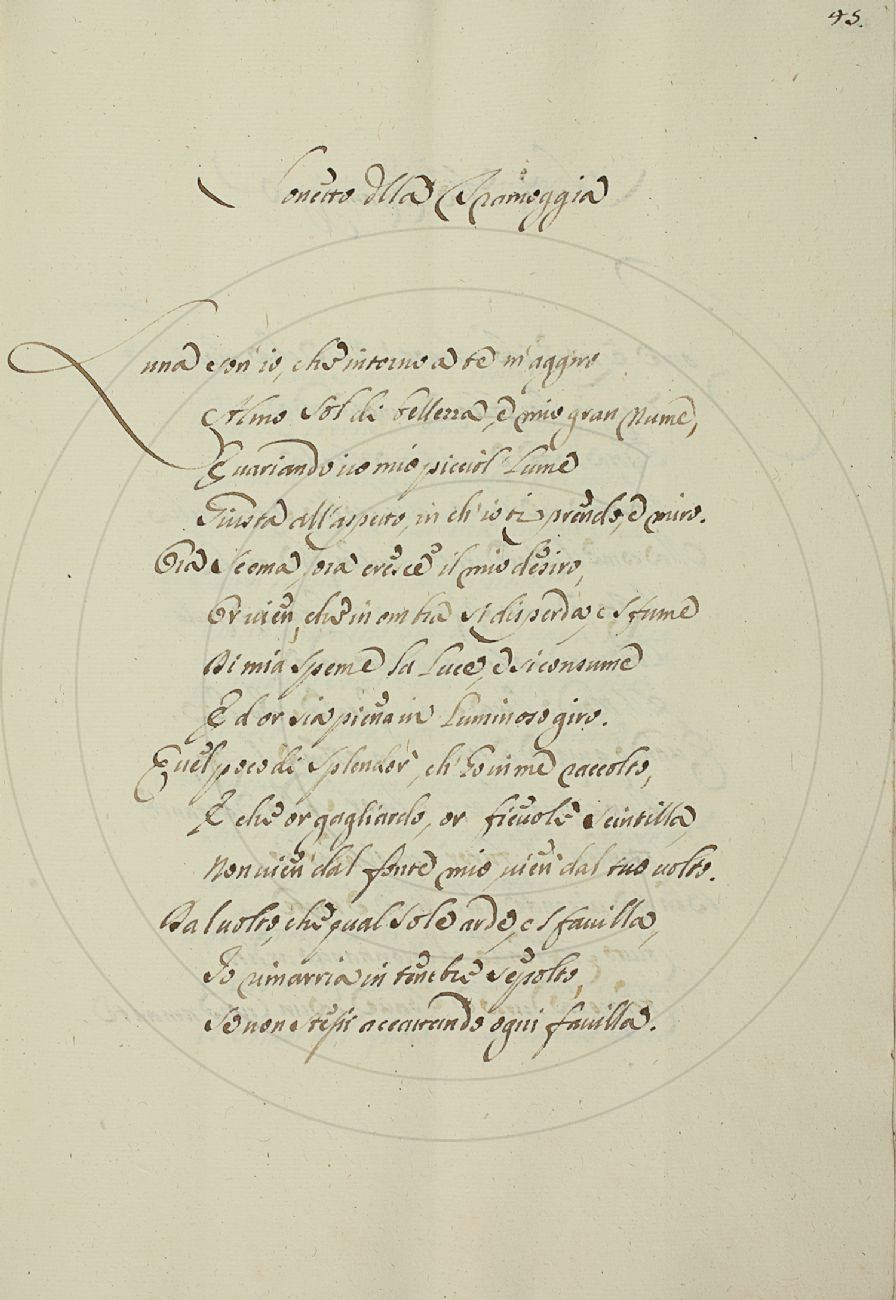 45.
Sonetto della Tramoggia
Luna son' io, che intorno a te m'aggiro
Almo Sol di bellezza, e mio gran Nume,
E variando vo mio picciol Lume
Giusta all'aspetto, in ch' io ti prendo, e miro.
Ora scema, ora cresce il mio desiro,
Or vien, che in ombra si disperda, e sfume
Di mia speme la Luce, e si consume
E d'or sia piena in Luminoso giro.
Quel poco di Splendor', ch' ho in me raccolto,
E che or gagliardo, or fievole scintilla,
Non vien' dal fonte mio, vien' dal tuo volto.
Dal volto, che qual Sole arde, e sfavilla,
Io rimarria in tenebre sepolto,
Se non stessi accattando ogni favilla.